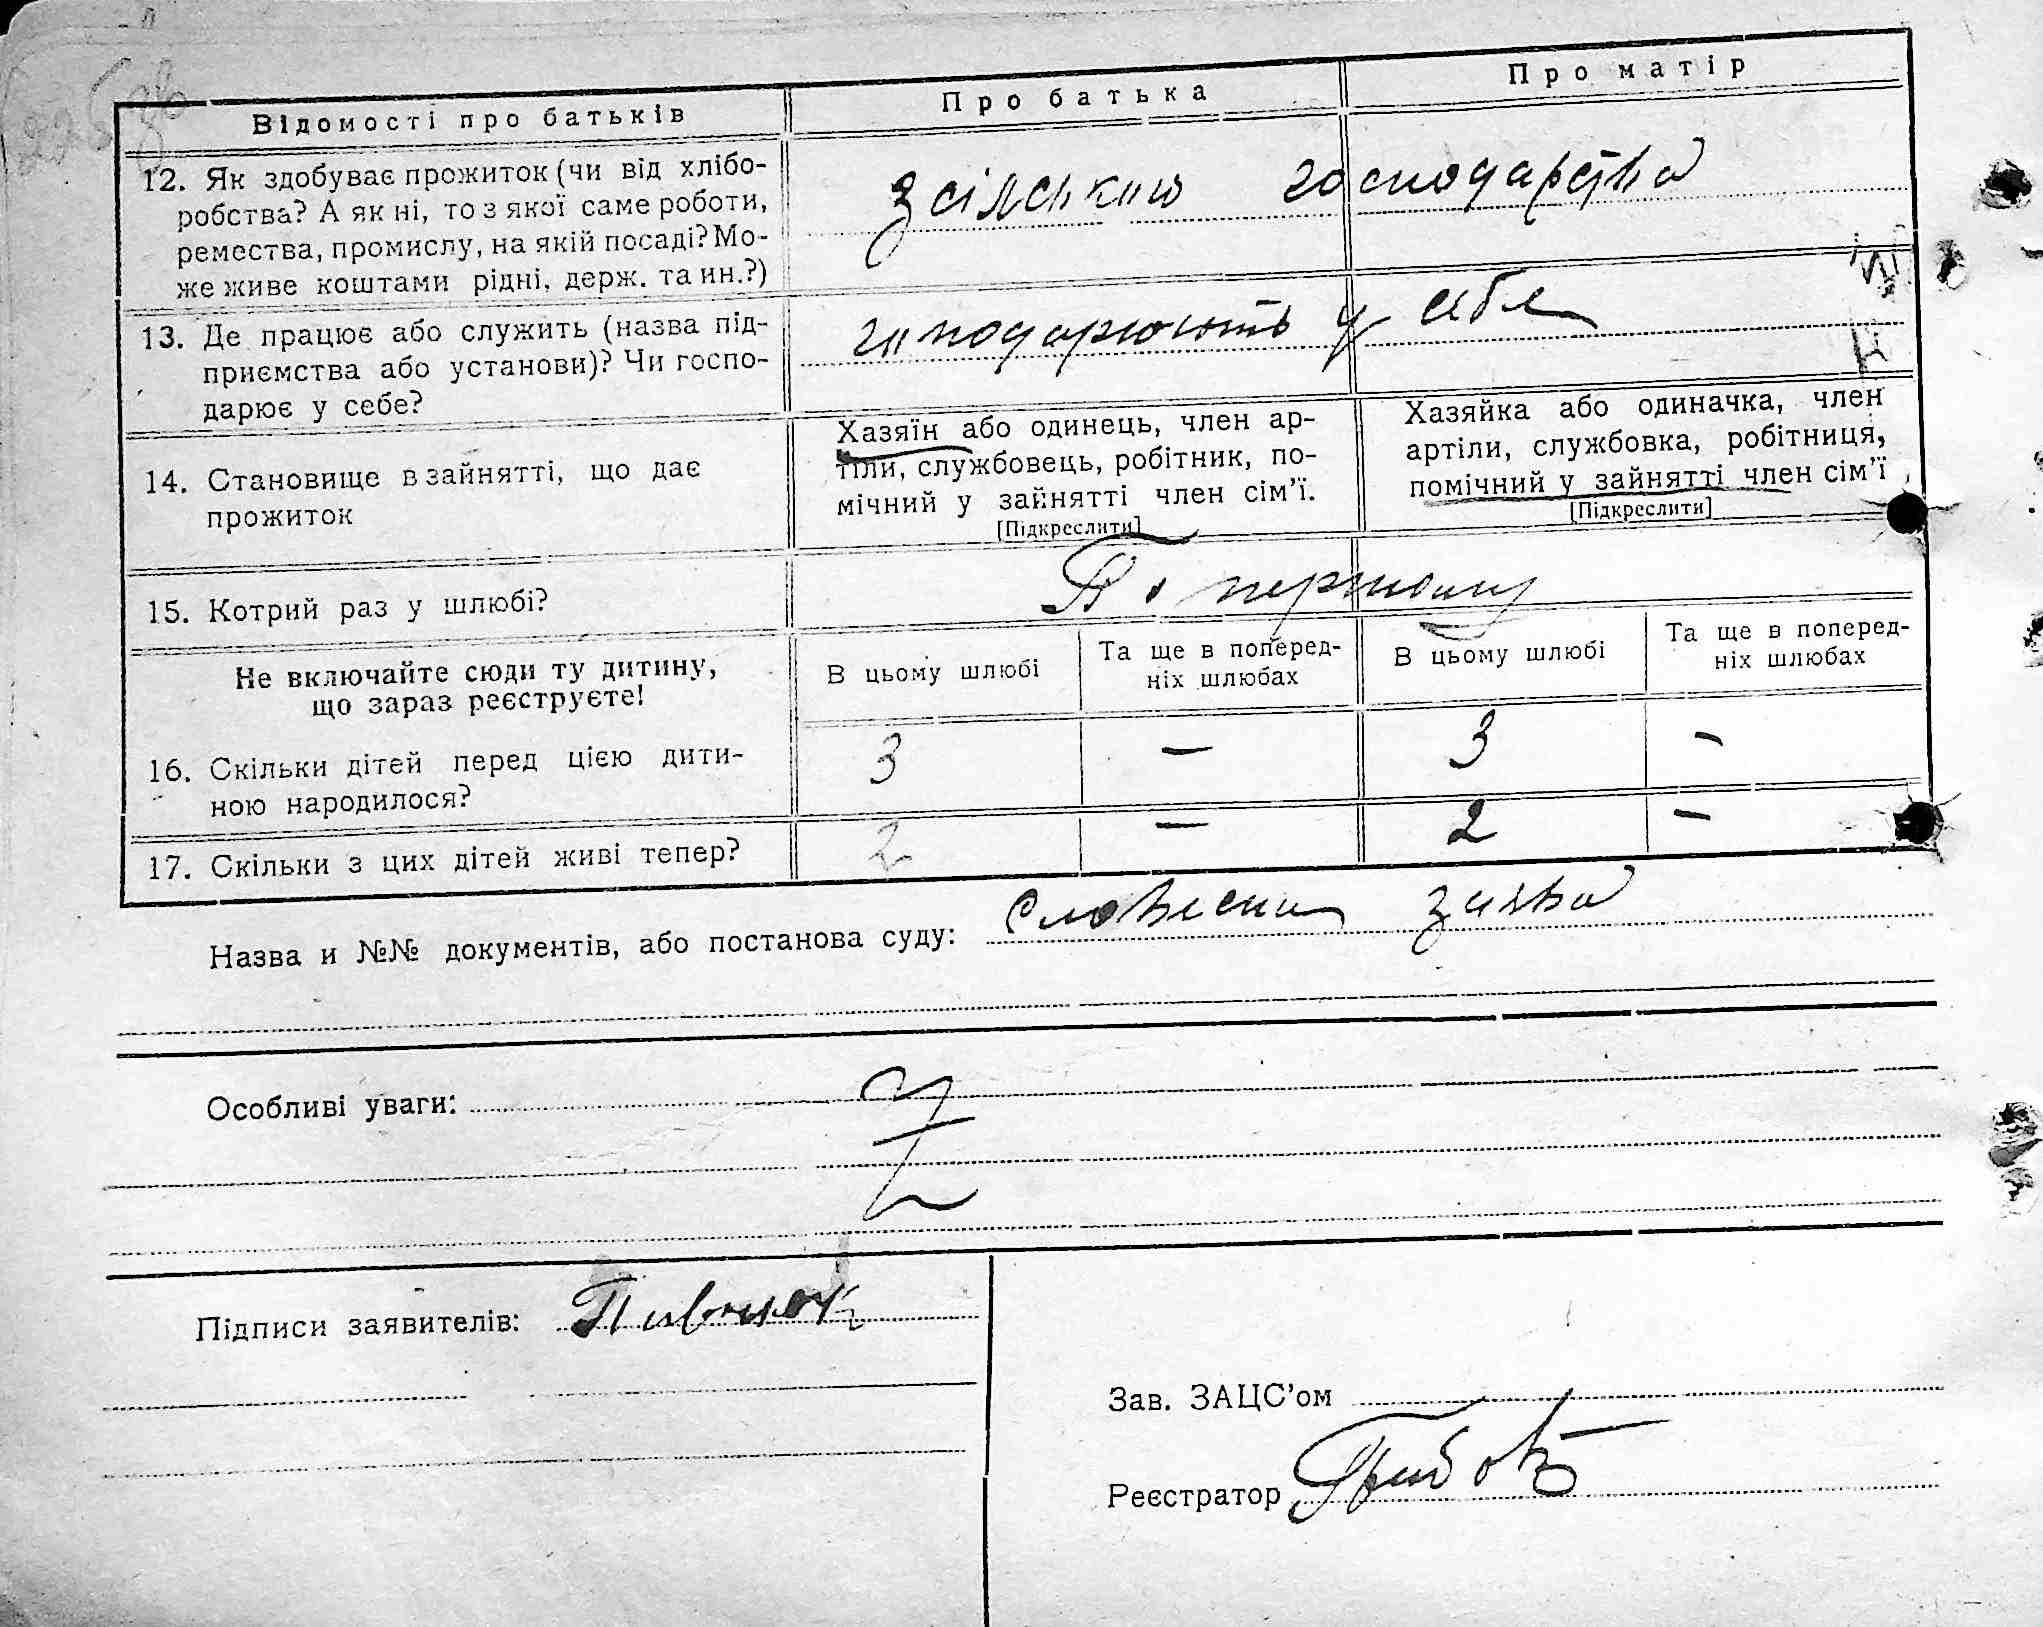 Відомості про батьків
Про батька
Про матір
12. Як здобуває прожиток (чи від хлібо-
робства? А як ні, то з якої саме роботи,
ремества, промислу, на якій посаді? Мо-
же живе коштами рідні, держ. та ин.?)
з сільського господарства
13. Де працює або служить (назва під-
приємства або установи)? Чи госпо-
дарює у себе?
господарюють у себе
14. Становище в зайнятті, що дає
прожиток
Хазяїн або одинець, член ар-
тіли, службовець, робітник, по-
мічний у зайнятті член сім'ї.
[Підкреслити]
Хазяйка або одиначка, член
артіли, службовка, робітниця,
помічний у зайнятті член сім'ї
[Підкреслити]
15. Котрий раз у шлюбі?
По первому
Не включайте сюди ту дитину,
що зараз реєструєте!
В цьому шлюбі
Та ще в поперед-
ніх шлюбах
В цьому шлюбі
Та ще в поперед-
ніх шлюбах
16. Скільки дітей перед цією дити-
ною народилося?
3 — 3 —
17. Скільки з цих дітей живі тепер?
2 — 2 —
Назва и №№ документів, або постанова суду: словесна заява
Особливі уваги:
Підписи заявителів:
Зав. ЗАЦС'ом
Реєстратор